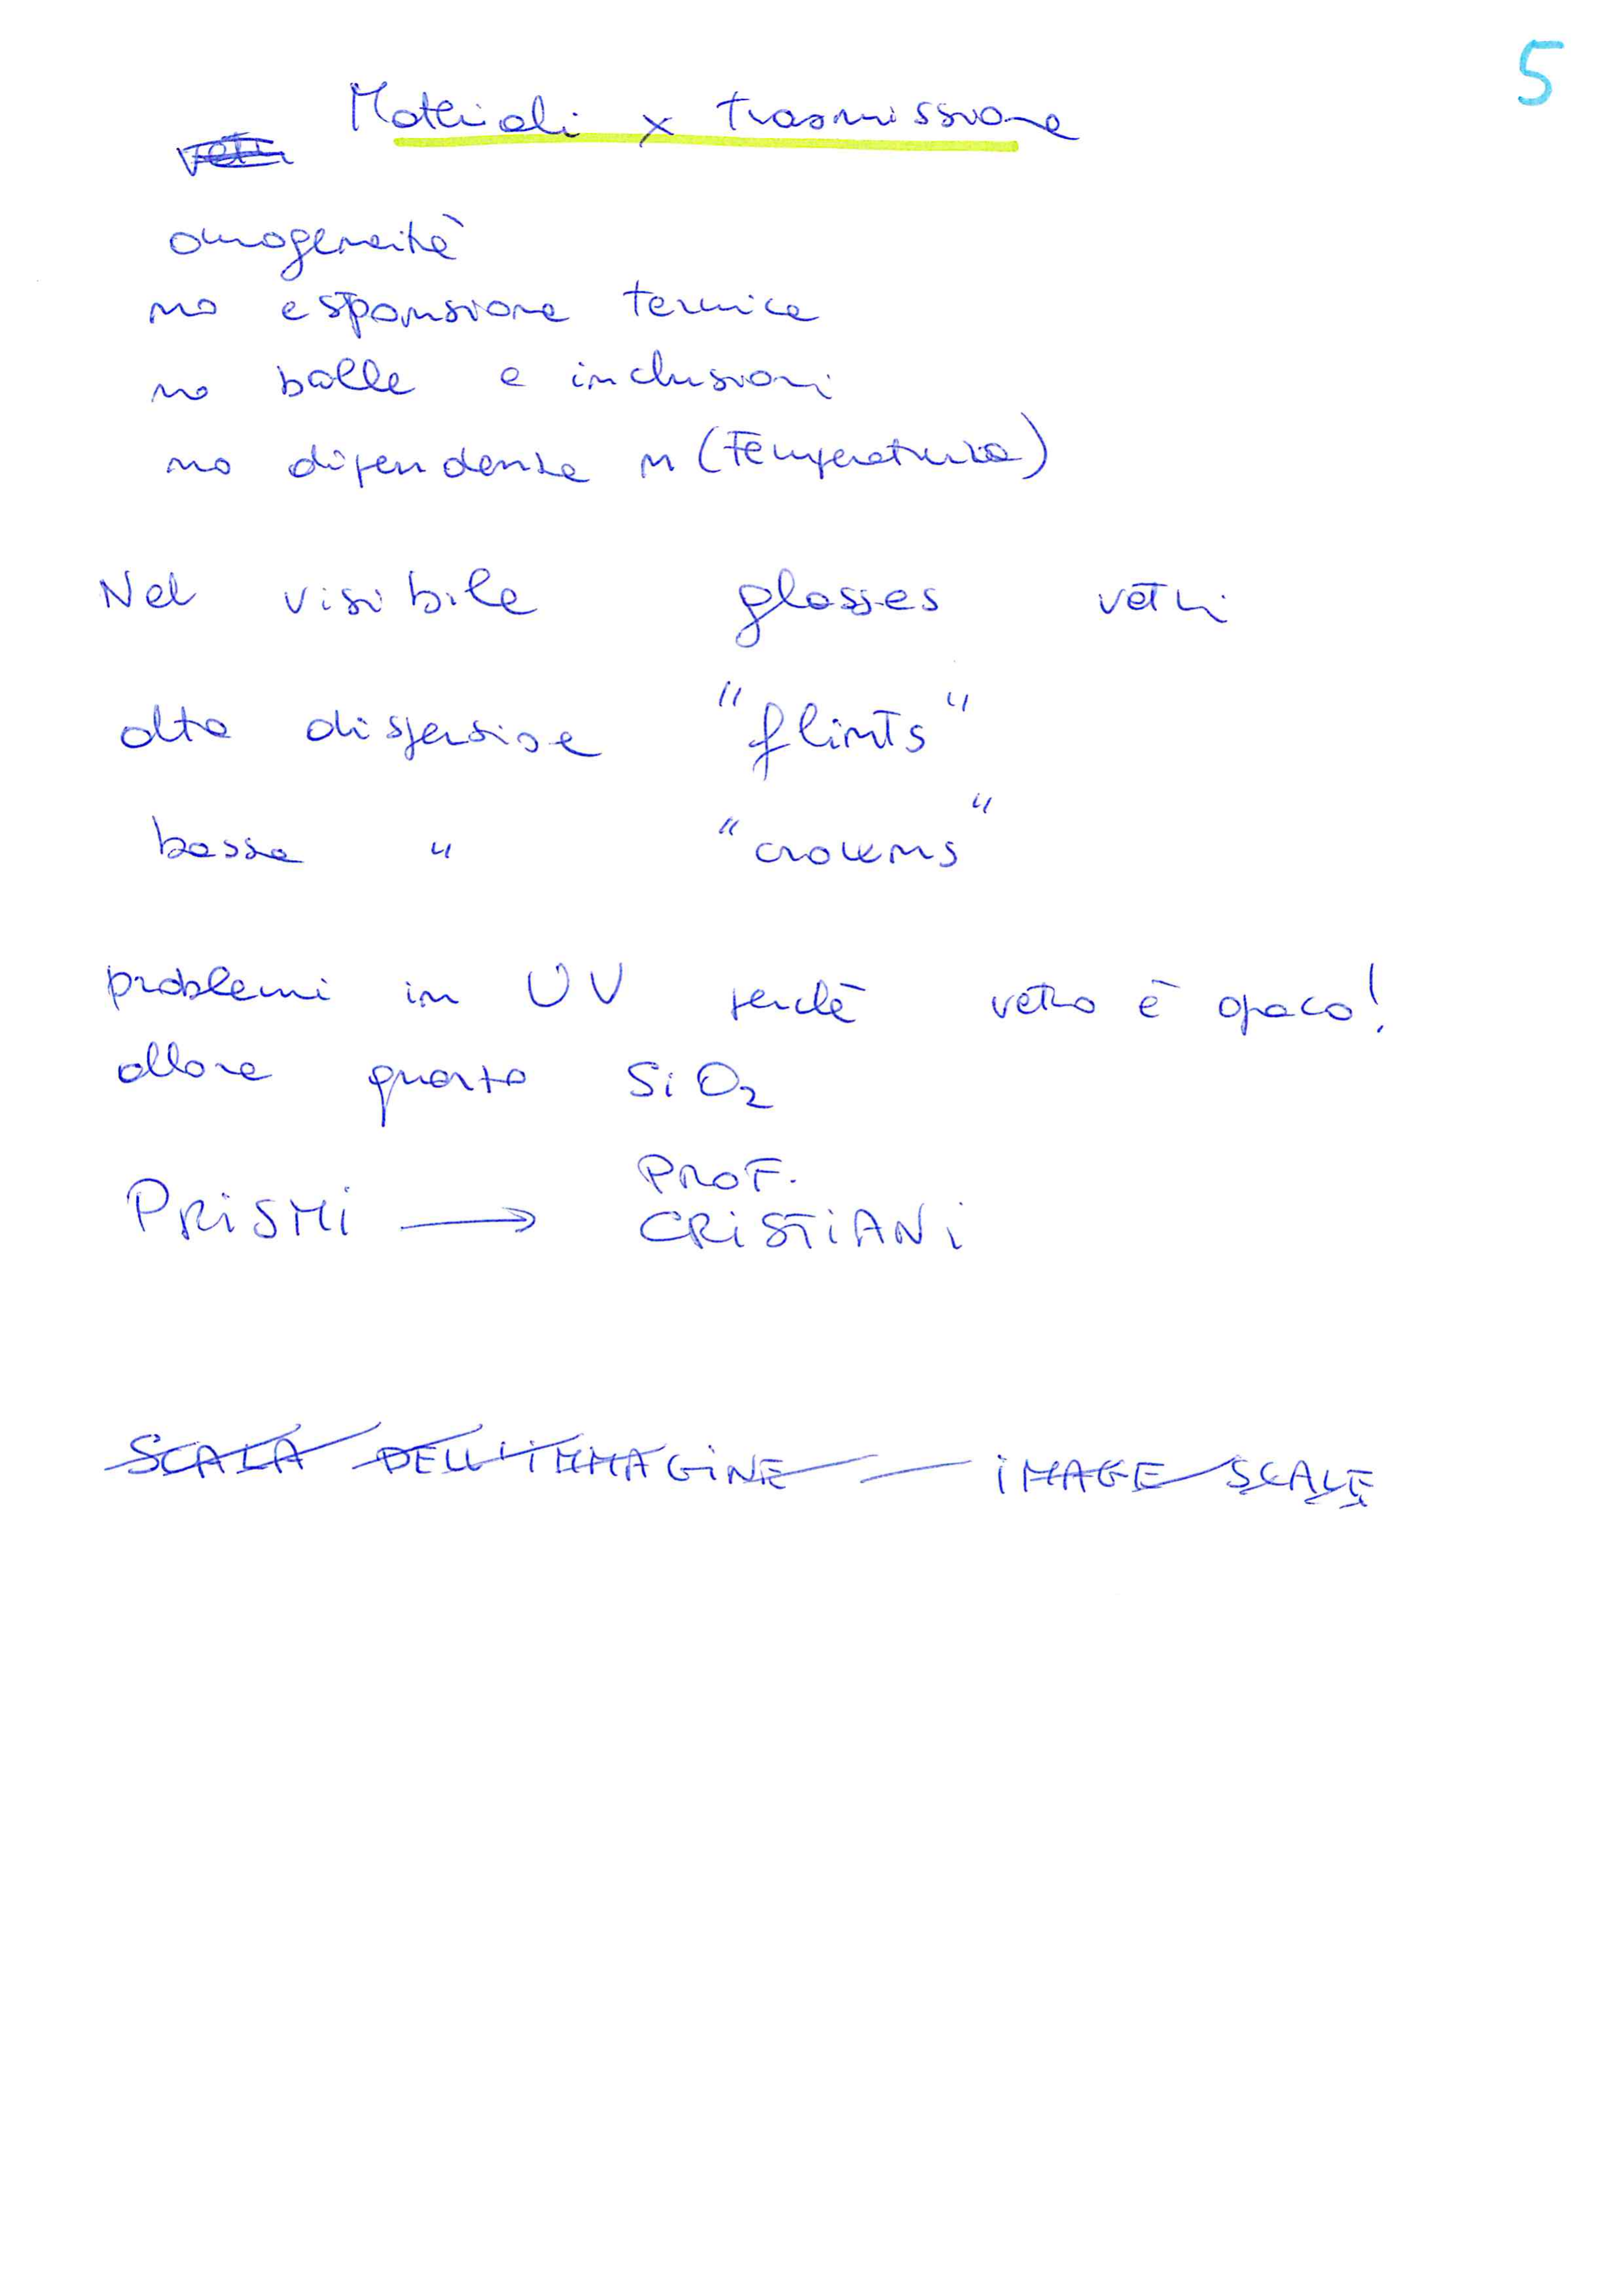 5
Materiali x trasmissione
vetri
omogeneità
no espansione termica
no bolle e inclusioni
no dipendenza n (Temperatura)
Nel visibile glasses vetri
alta dispersione "flints"
bassa " "crowns"
problemi in UV perchè vetro è opaco!
allora quarzo SiO2
PROF.
PRISMI → CRISTIANI
SCALA DELL'IMMAGINE — IMAGE SCALE